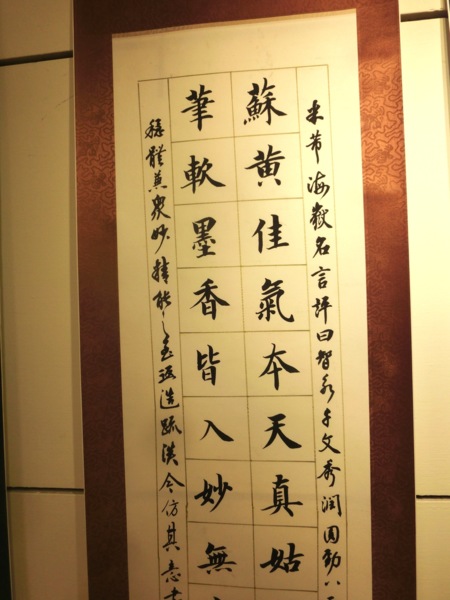 米芾海嶽名言評曰智永千文秀潤圓勁八
蘇黃佳氣本天真姑
筆軟墨香皆入妙無
體兼衆妙精能之至返造疏淡今仿其意書